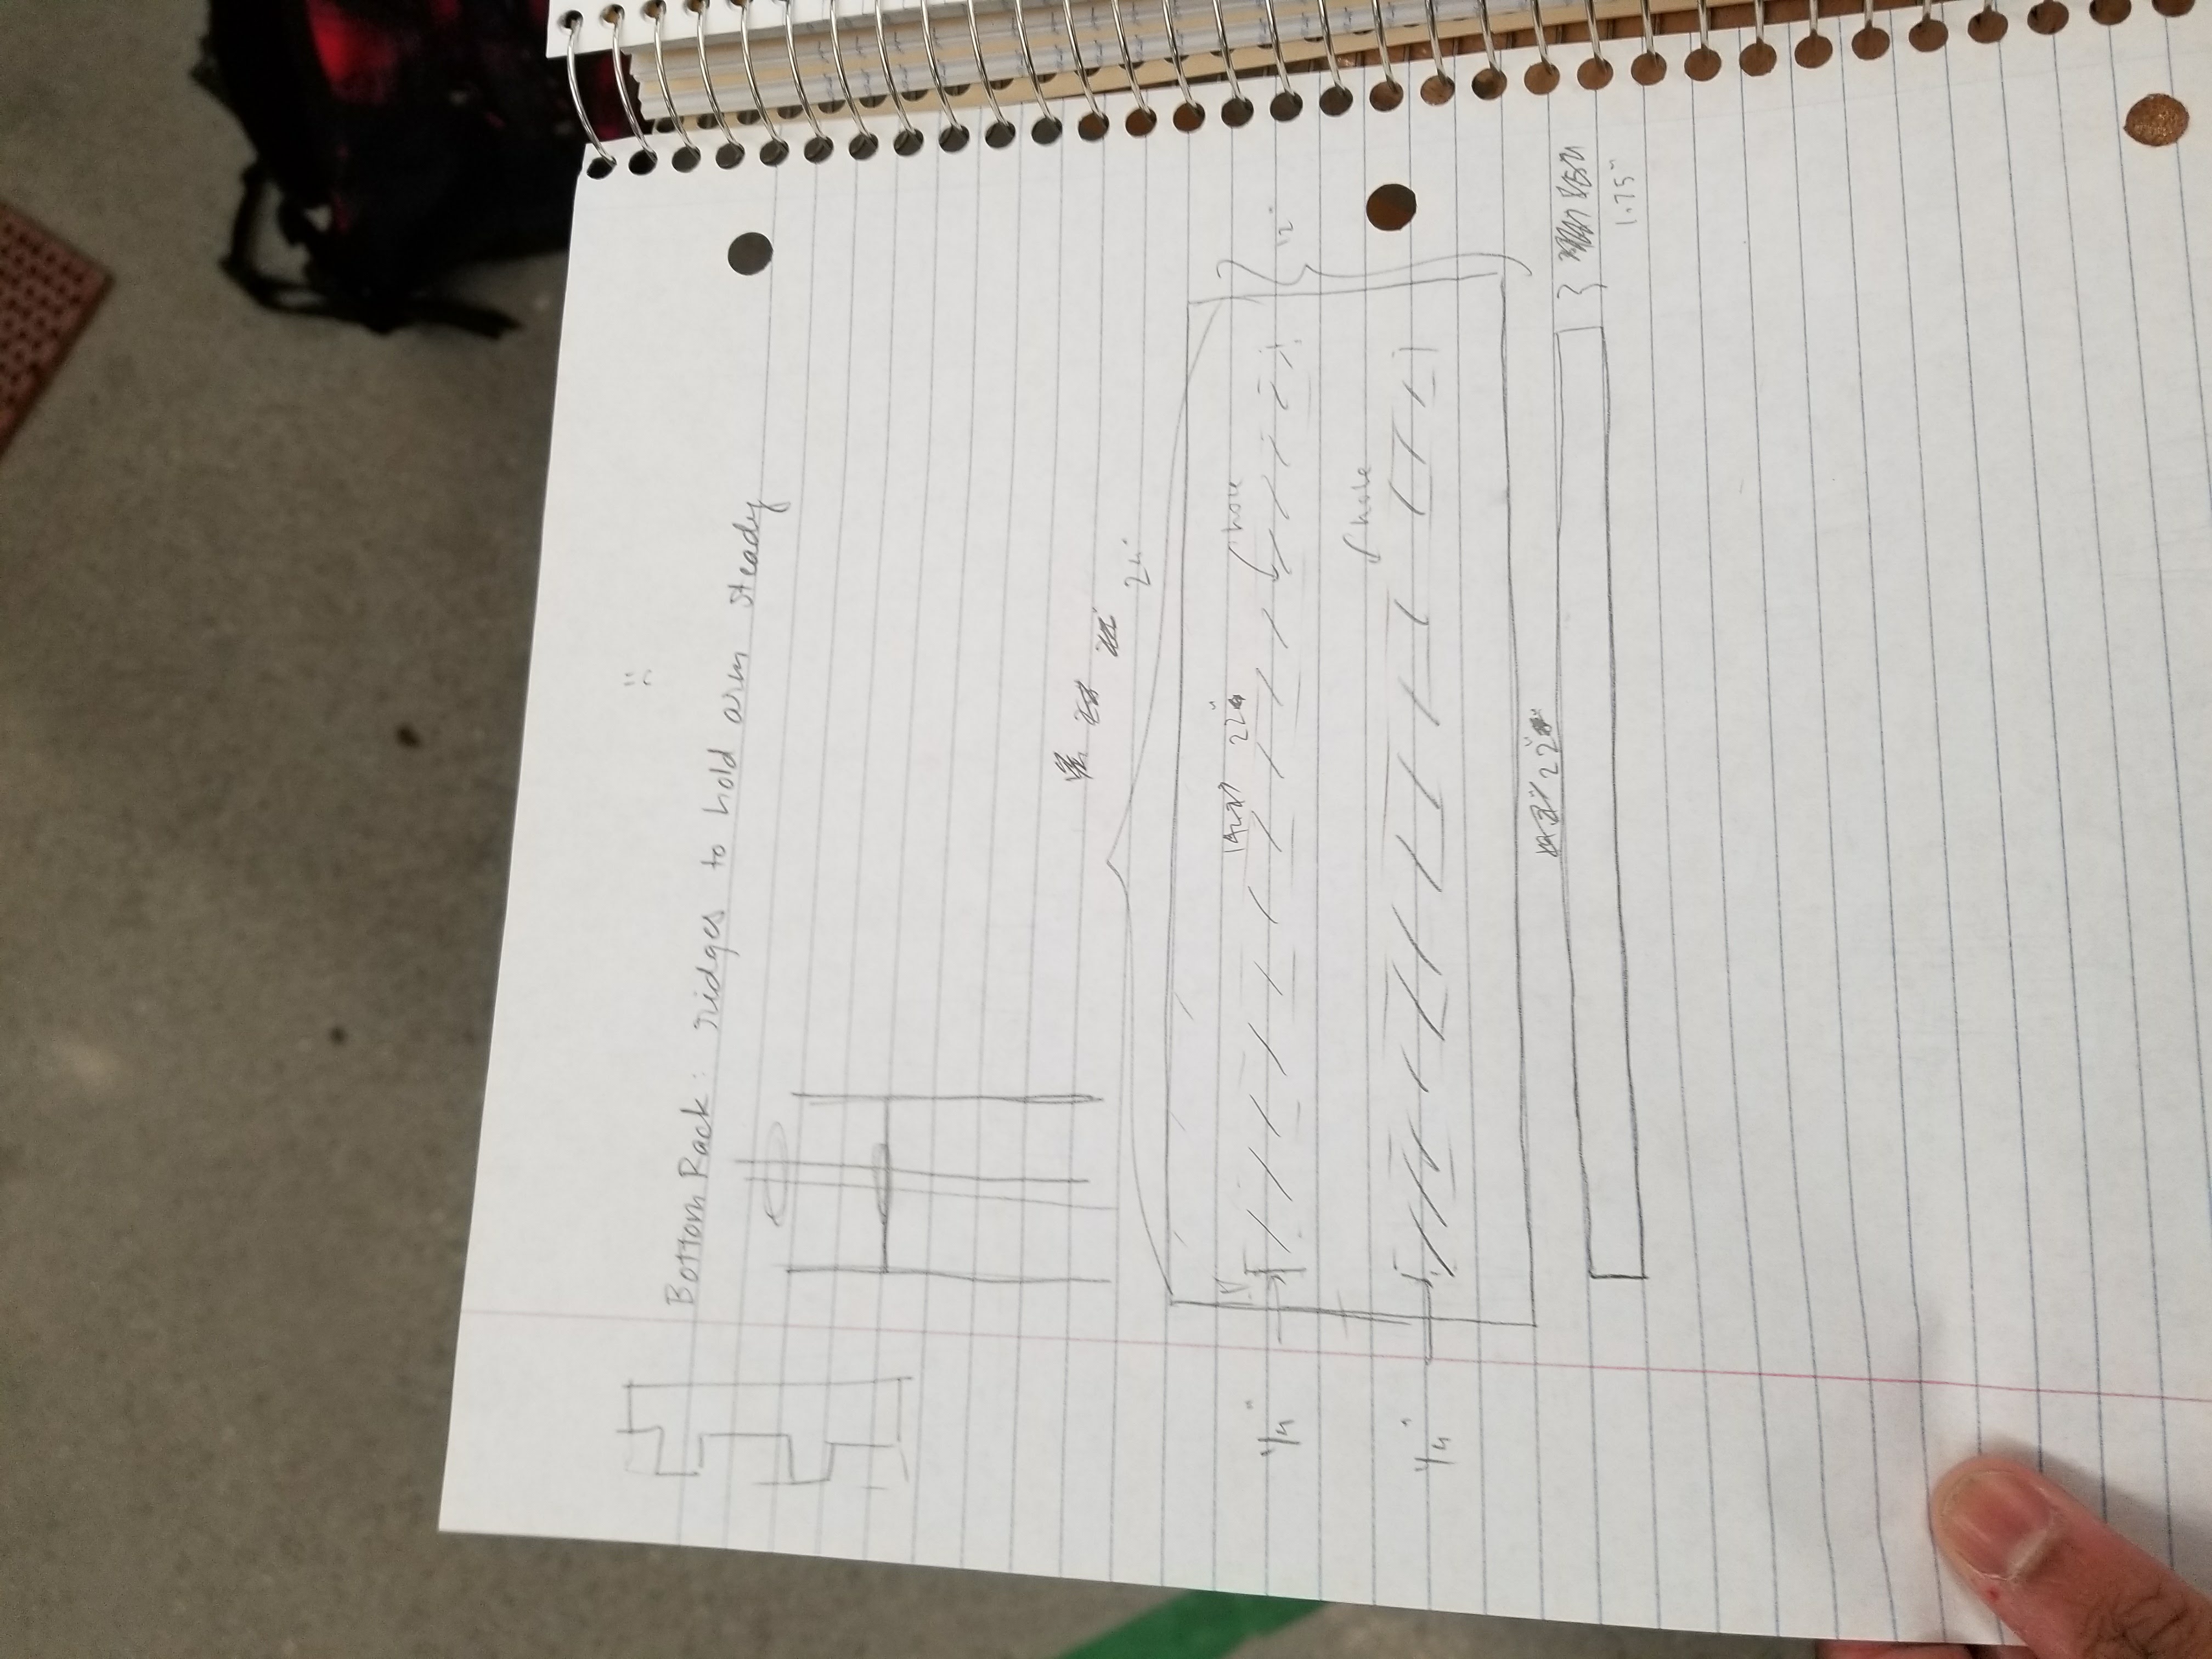 Bottom Rack: ridges to hold arm steady
24"
22"
hole
1/4"
12"
hole
1/4"
22"
1.75"